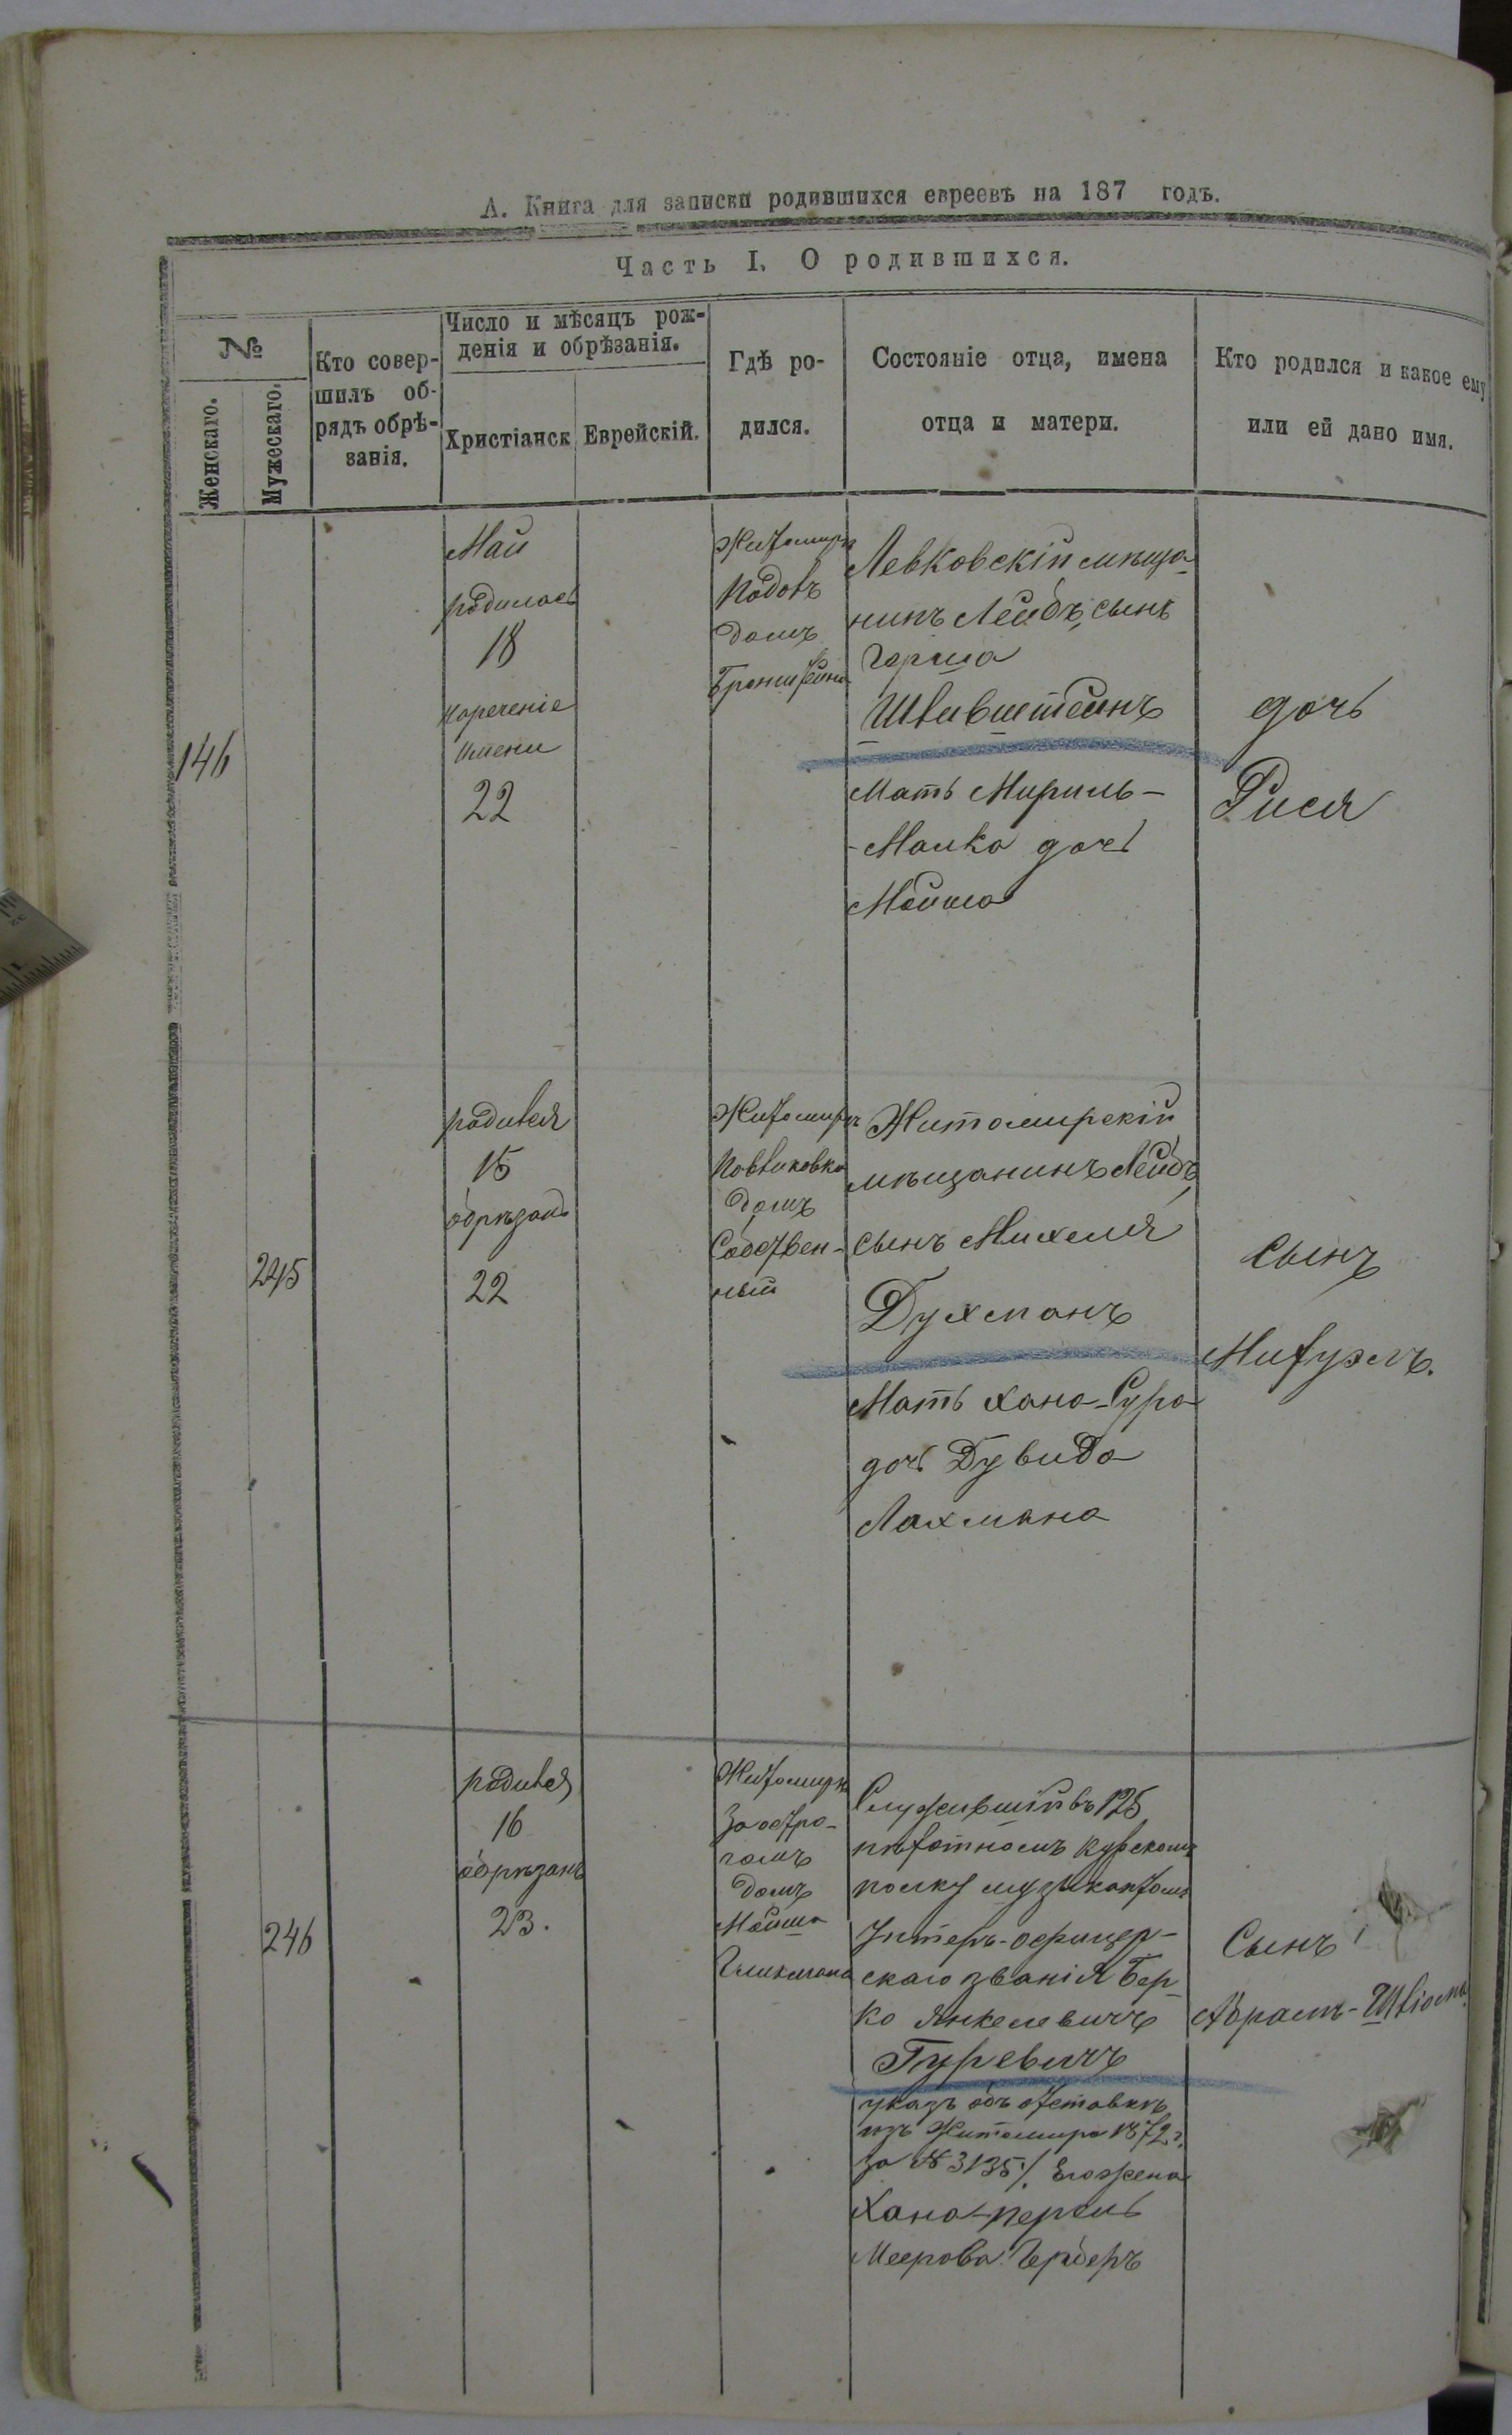 А. Книга для записки родившихся евреевъ на 187 годъ.
Часть I. О родившихся.
№
Женскаго.
Мужескаго.
Кто совер-
шилъ об-
рядъ обрѣ-
занія.
Число и мѣсяцъ рож-
денія и обрѣзанія.
Христіанск
Еврейскій.
Гдѣ ро-
дился.
Состояніе отца, имена
отца и матери.
Кто родился и какое ему
или ей дано имя.
146
Май
родилась
18
нареченіе
имени
22
Житомиръ
домъ
Левковскій мѣща-
нинъ Лейбъ, сынъ
Герша
Мать Мириль-
-Малка дочь
Мойша
дочь
Рися
245
родився
15
обрѣзанъ
22
Житомиръ
домъ
Собствен-
ный
Житомирскій
мѣщанинъ Лейбъ,
сынъ Михеля
Духманъ
Мать Хана-Сура
дочь Дувида
Лахмана
сынъ
246
родився
16
обрѣзанъ
23.
Житомиръ
За остро-
гомъ
домъ
Мойша
Гликмана
Служившій въ 125
пѣхотномъ Курскомъ
полку музыкантомъ
Унтеръ-офицер-
скаго званія Бер-
ко Янкелевичъ
Гуревичъ
указъ объ отставкѣ
изъ Житомира 1872 г.
за № 3135/. Его жена
Хана-Перель
Меерова Герберъ
Сынъ
Абрамъ-